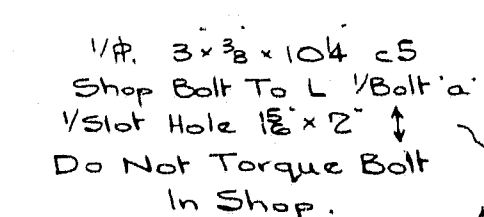 1/℄. 3" x 3/8" x 10 1/4" c5
Shop Bolt To L 1/Bolt 'a'
1/Slot Hole 15/16" x 2" ↕
Do Not Torque Bolt
In Shop.